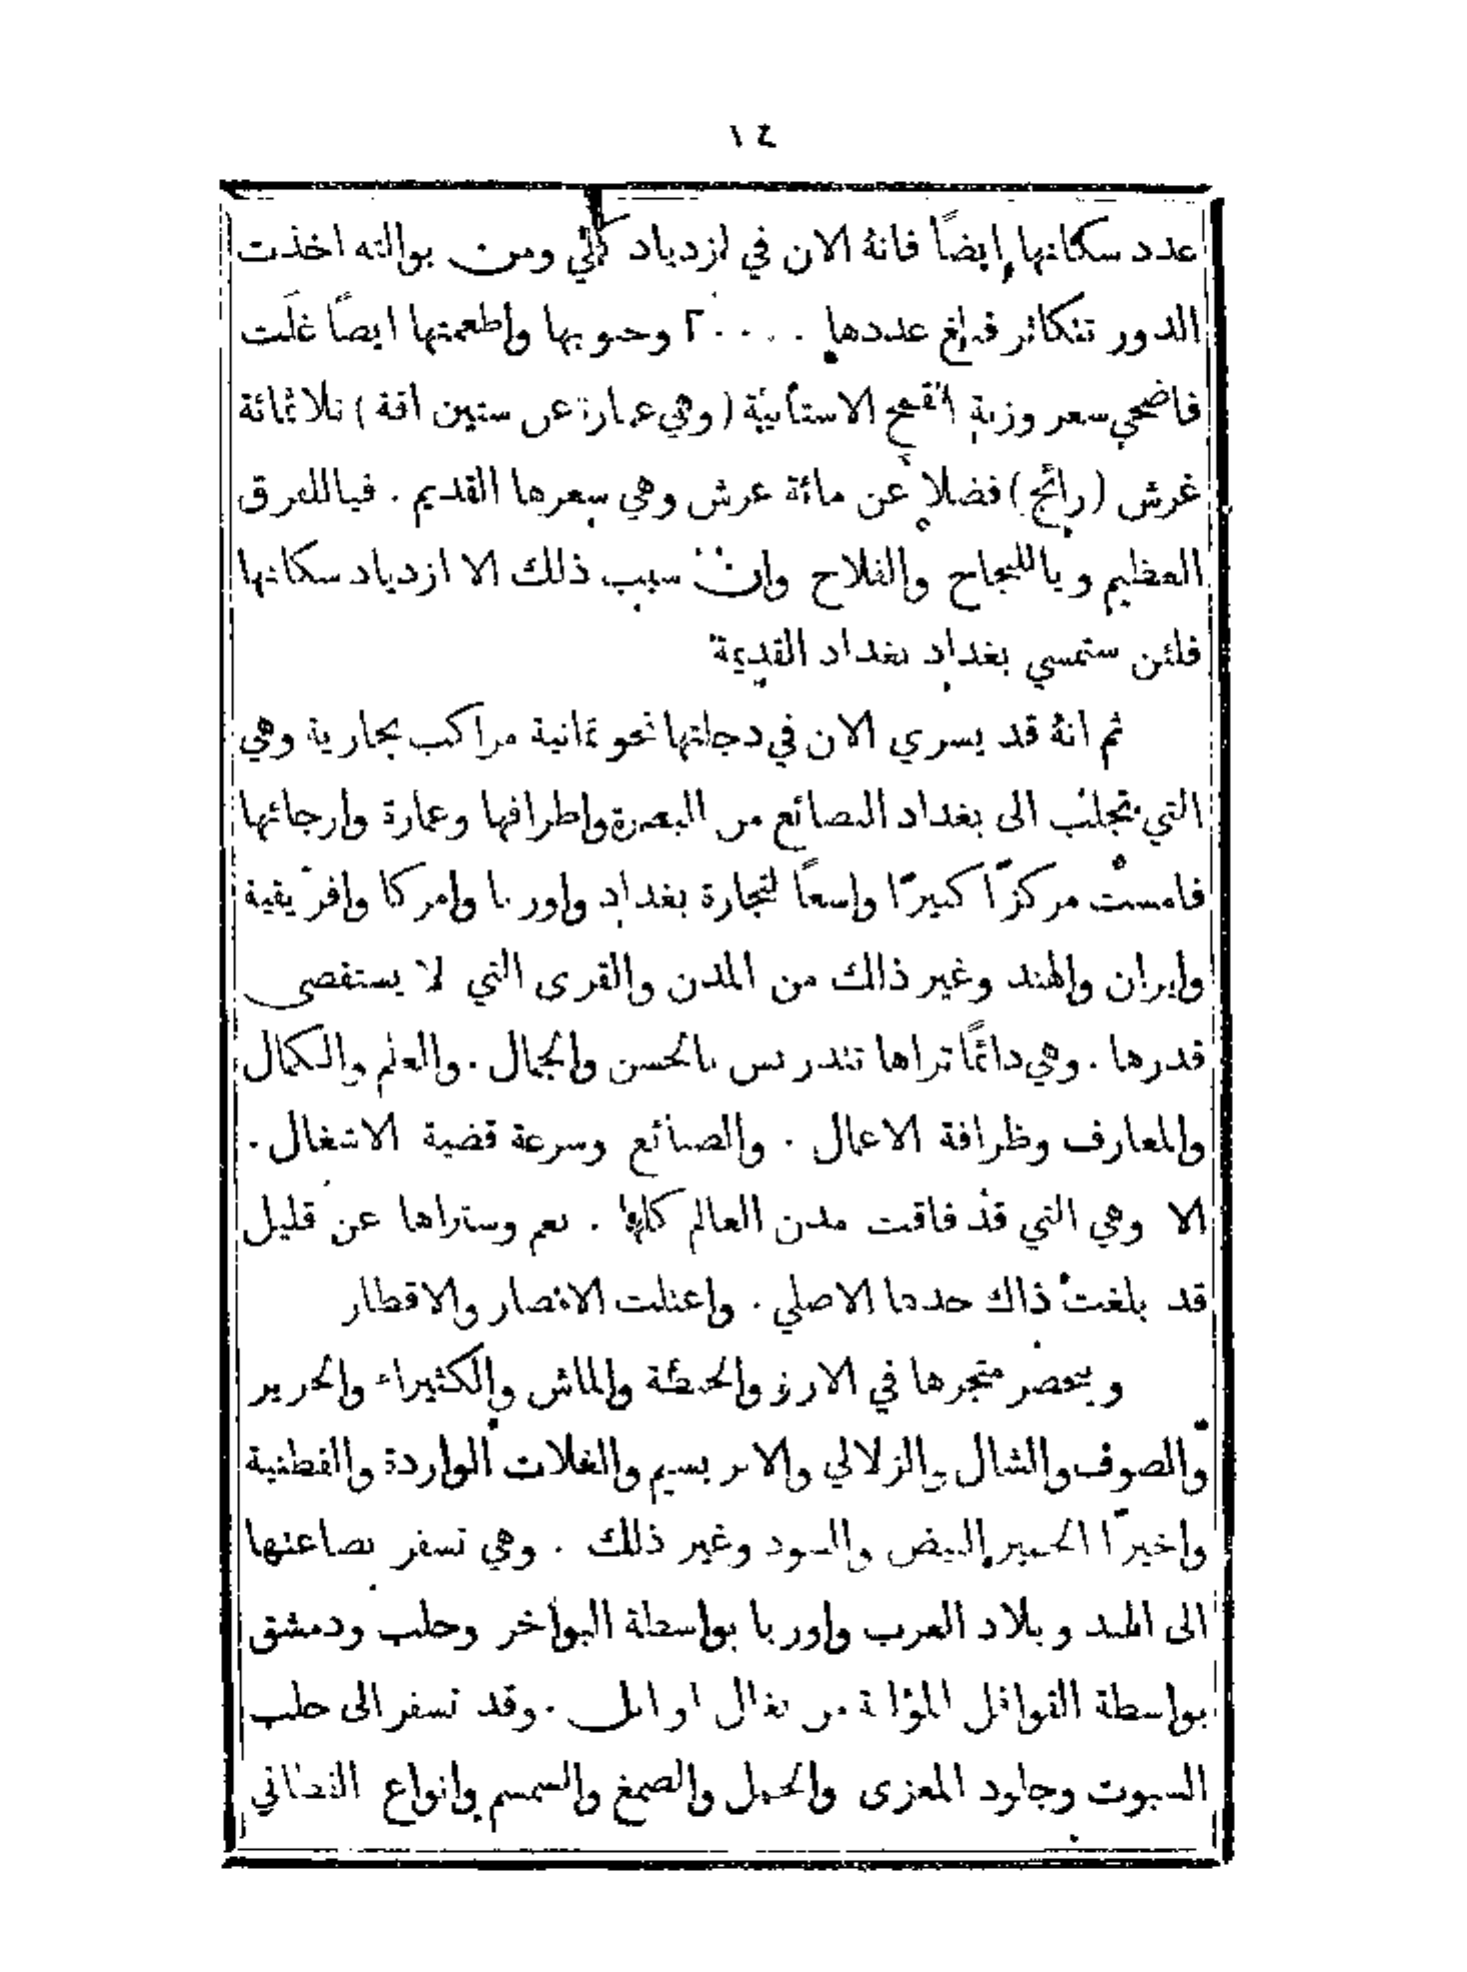 ١٤
عدد سكانها ايضًا فانهُ الان في ازدياد كلّي ومن بوالته اخذت
الدور تتكاثر فبلغ عددها ٢٠٠٠٠ وحبوبها واطعمتها ايضًا غلَت
فاضحى سعر وزنة القمح الاستانيّة (وهي عبارة عن ستين اقة) ثلاثمائة
غرش (رائج) فضلاً عن مائة غرش وهي سعرها القديم . فياللفرق
العظيم وياللنجاح والفلاح وان سبب ذلك الا ازدياد سكانها
فلئن ستمسي بغداد بغداد القديمة
ثم انهُ قد يسري الان في دجلتها نحو ثمانية مراكب بخارية وهي
التي تجلب الى بغداد البضائع من البصرة واطرافها وعمارة وارجائها
فامست مركزًا كبيرًا واسعًا لتجارة بغداد واوربا وامركا وافريقية
وايران والهند وغير ذالك من المدن والقرى التي لا يستقصى
قدرها . وهي دائمًا تراها تتدربس بالحسن والجمال . والعلم والكمال
والمعارف وظرافة الاعمال . والصنائع وسرعة قضية الاشغال .
الا وهي التي قد فاقت مدن العالم كلها . نعم وستراها عن قليل
قد بلغت ذاك حدها الاصلي . واعتلت الامصار والاقطار
وينحصر متجرها في الارز والحنطة والماش والكثيراء والحرير
والصوف والشال والزلالي والابريسيم والغلات الواردة والقطنية
واخيرًا الحمير البيض والسود وغير ذلك . وهي تسفر بضاعتها
الى الهند وبلاد العرب واوربا بواسطة البواخر وحلب ودمشق
بواسطة القوافل المؤلفة من بغال او ابل . وقد تسفر الى حلب
السبوت وجلود المعزى والحمل والصمغ والسمسم وانواع القطاني